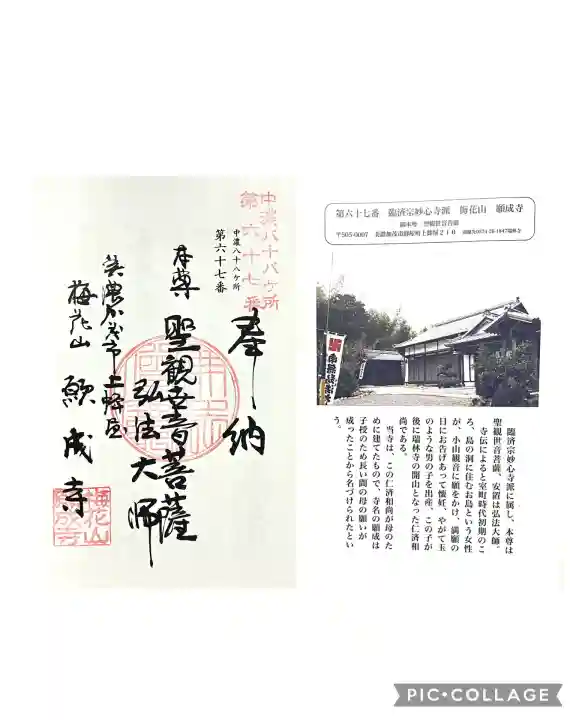 中濃八十八ケ所
第六十七番
中濃八十八ケ所
第六十七番
奉納
本尊 聖観世音菩薩
弘法大師
美濃加茂市上蜂屋
梅花山 願成寺
梅花山
願成寺
第六十七番 臨済宗妙心寺派 梅花山 願成寺
御本尊 聖観世音菩薩
臨済宗妙心寺派に属し、本尊は
聖観世音菩薩。安置は弘法大師。
寺伝によると室町時代初期のこ
ろ、島の洞に住むお島という女性
が、小山観音に願をかけ、満願の
日にお告げあって懐妊、やがて玉
のような男の子を出産、この子が
後に瑞林寺の開山となった仁済和
尚である。
当寺は、この仁済和尚が母のた
めに建てたもので、寺名の願成は
子授のため長い間の母の願いが
成ったことから名づけられたとい
う。
PIC•COLLAGE